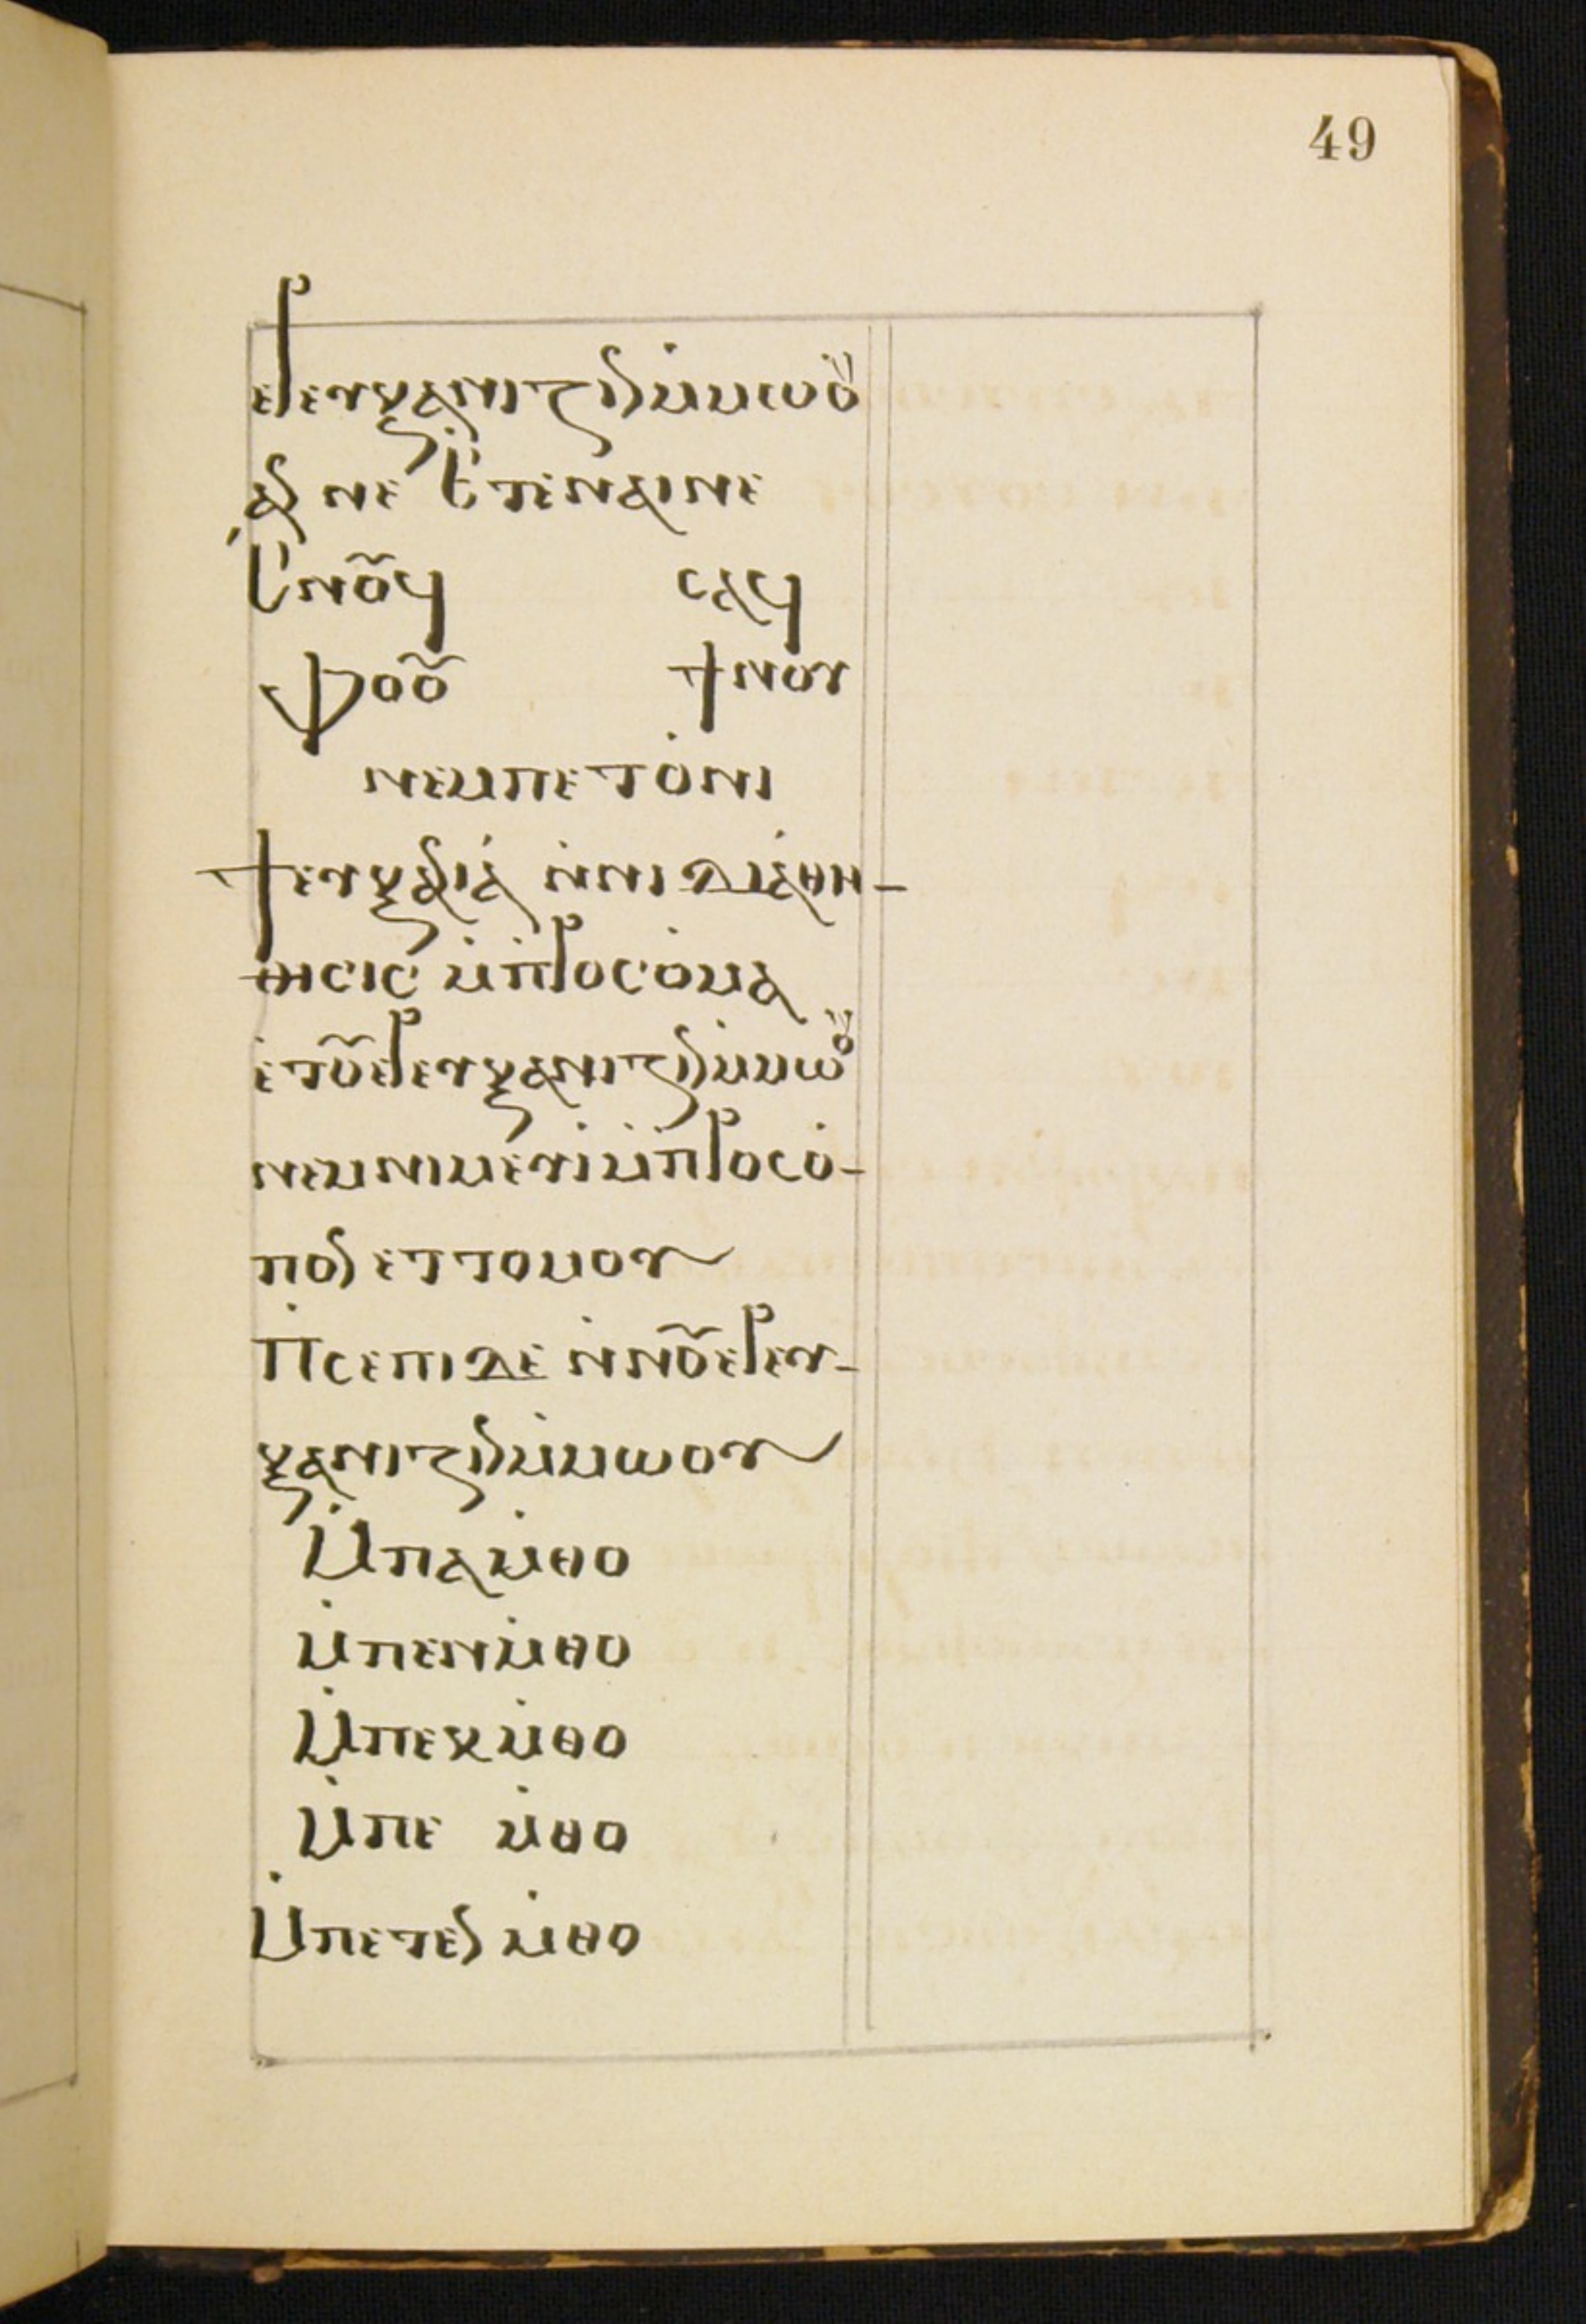 49
ⲉⲣⲉⲩⲭⲁⲛⲓⲧⲍⲓⲛⲙ̇ⲙⲱⲟⲩ
ⲁⲛ ⲛⲉ ⲉ̇ⲧⲉⲛⲁⲓⲛⲉ
ⲉ̇ⲛⲟⲩϥ ⲥⲁϥ
ⲫⲟⲟⲩ ϯⲛⲟⲩ
ⲛⲉⲙⲡⲉⲧⲟ̇ⲛⲓ
ϯⲉⲩⲭⲁⲛⲓⲁ̇ ⲛ̇ⲛⲓⲇⲓⲁ̇ⲑⲏ-
ⲑⲓⲥⲓⲥ ⲙ̇ⲡ̇ⲣⲟⲥⲟ̇ⲙⲁ
ⲉ̇ⲧⲟⲩⲉⲣⲉⲩⲭⲁⲛⲓⲧⲍⲓⲛⲙ̇ⲙⲱⲟⲩ
ⲛⲉⲙⲛⲓⲙⲉⲩⲓ̇ⲙ̇ⲡ̇ⲣⲟⲥⲟ̇-
ⲡⲟⲛ ⲉⲧⲧⲟⲙⲟⲩ
ⲡ̇ⲥⲉⲡⲓⲇⲉ ⲛ̇ⲛⲟⲩⲉⲣⲉⲩ-
ⲭⲁⲛⲓⲧⲍⲓⲛⲙ̇ⲙⲱⲟⲩ
ⲙ̇ⲡⲁⲙ̇ⲑⲟ
ⲙ̇ⲡⲉⲛⲙ̇ⲑⲟ
ⲙ̇ⲡⲉⲕⲙ̇ⲑⲟ
ⲙ̇ⲡⲉ ⲙ̇ⲑⲟ
ⲙ̇ⲡⲉⲧⲉⲛ ⲙ̇ⲑⲟ